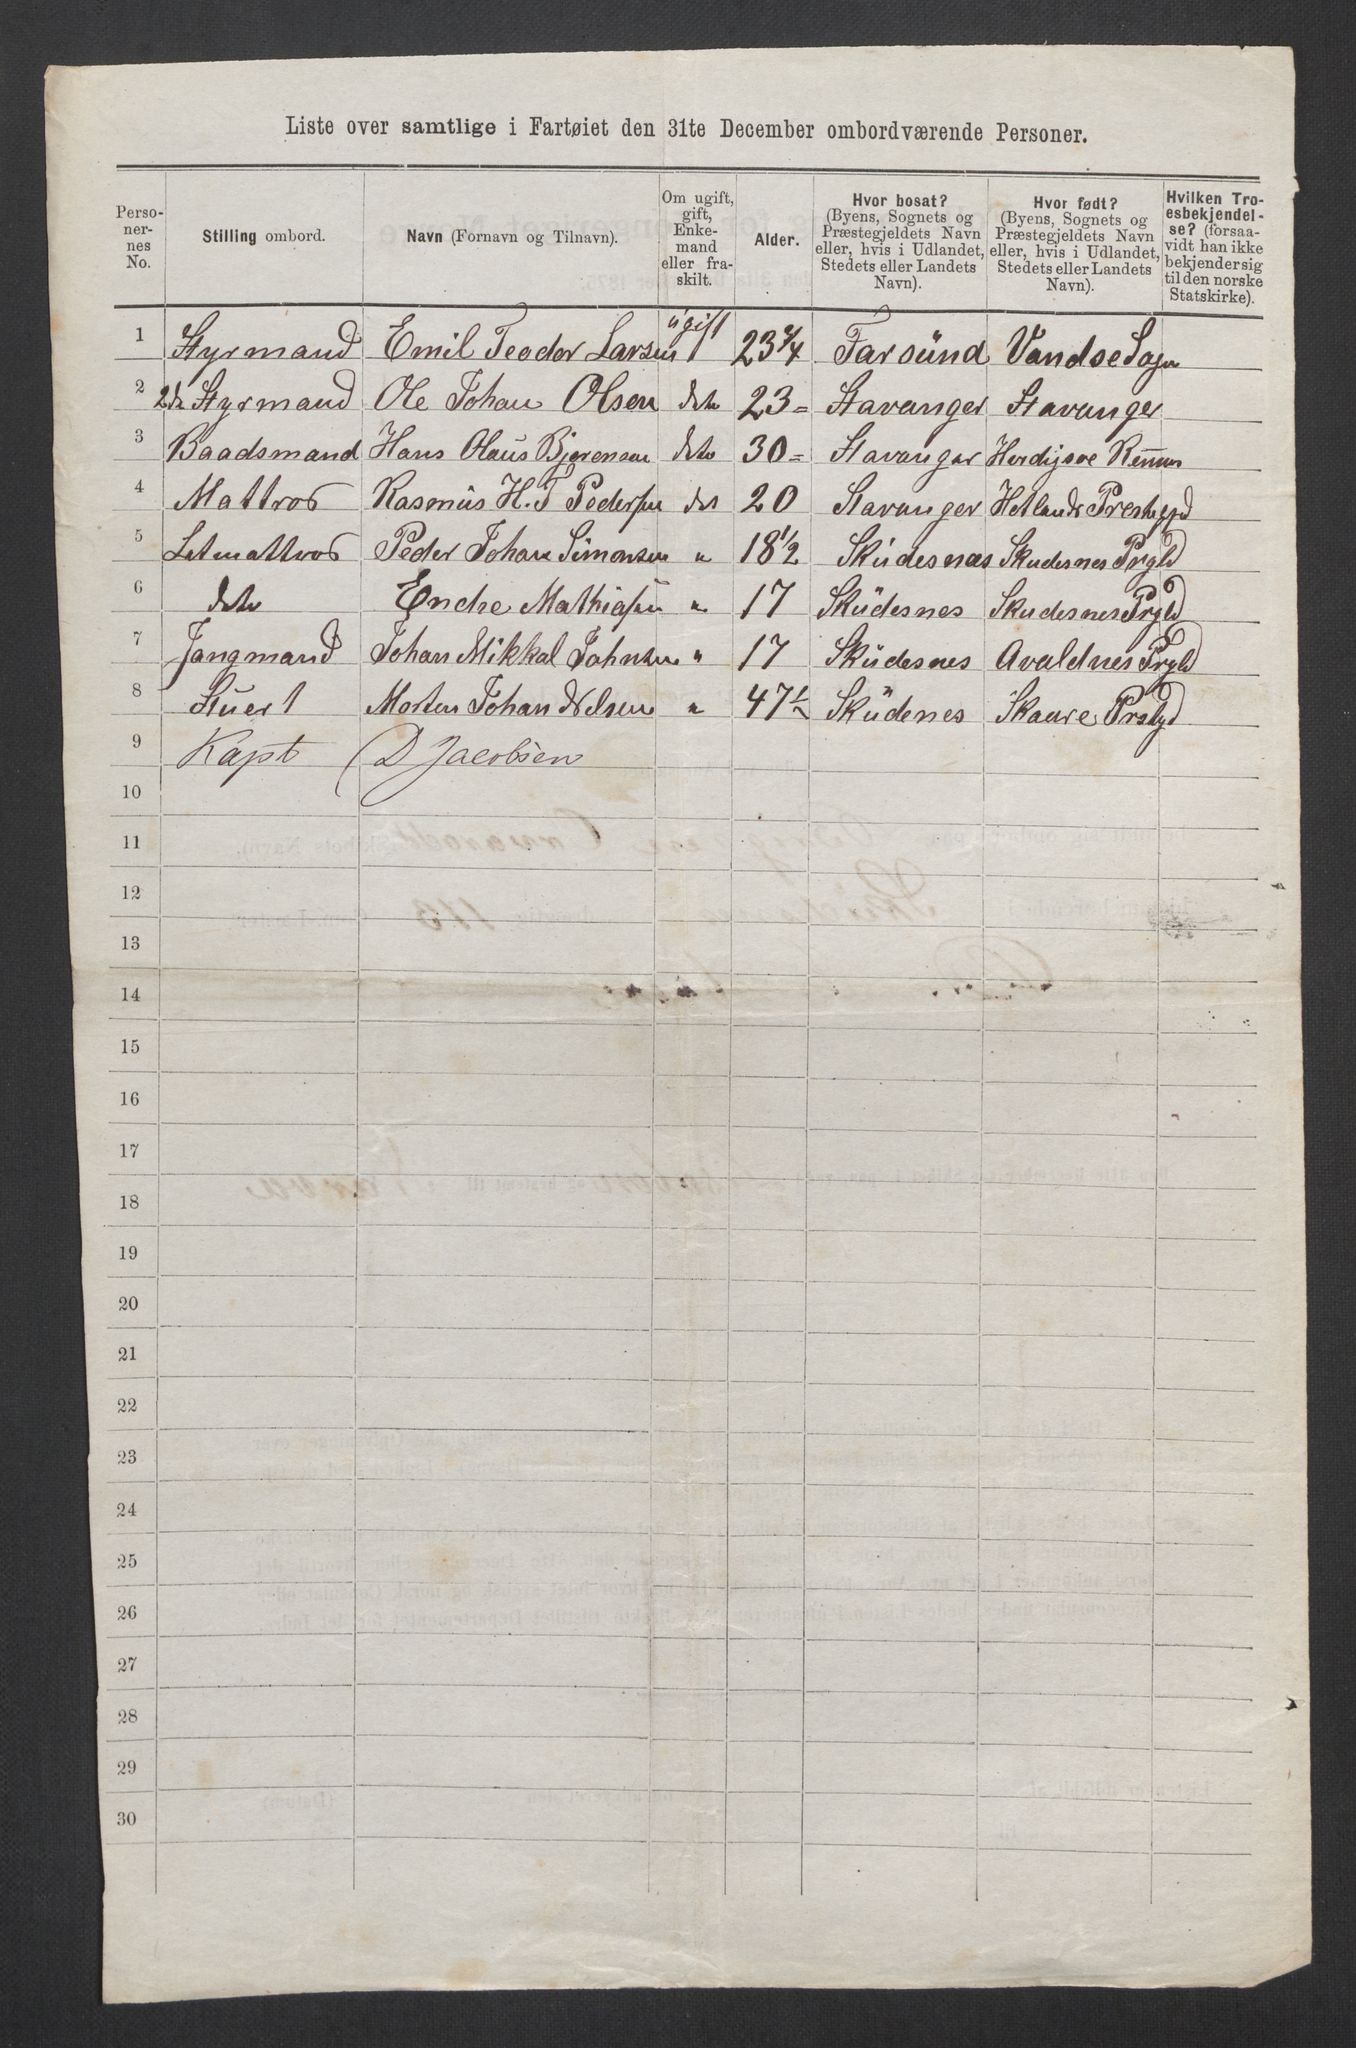 Liste over samtlige i Fartøiet den 31te December ombordværende Personer.
Perso-
ner-
nes
No.
Stilling ombord.
Navn (Fornavn og Tilnavn).
Om ugift,
gift,
Enke-
mand
eller fra-
skilt.
Alder.
Hvor bosat?
(Byens, Sognets og
Præstegjeldets Navn
eller, hvis i Udlandet,
Stedets eller Landets
Navn).
Hvor født?
(Byens, Sognets og
Præstegjeldets Navn
eller, hvis i Udlandet,
Stedets eller Landets
Navn).
Hvilken Tro-
esbekjendel-
se? (forsaa-
vidt han ikke
bekjender sig
til den norske
Statskirke).
1 Styrmand Emil Teodor Larsen ügift 23 Farsünd Vandse Sogn
2 2de Styrmand Ole Johan Olsen dito 23 = Stavanger Stavanger
3 Baadsmand Hans Olaus Bjørensen dito 30 = Stavanger
4 Mattros Rasmüs H. T Pedersen dit 20 Stavanger Hetlands
5 Letmattros Peder Johan Simonsen " 18 1/2 Sküdesnes Skudesnes Prgld
6 dito Endre Mathiasen " 17 Sküdesnes Skudesnes Prgld
7 Jangmand Johan Mikkal Johnsen " 17 Sküdesnes Avaldnes Prgld
8 Stuert Morten Johan Nilsen " 47 1/2 Sküdenes Skaare
9 Kapt D Jacobsen
10
11
12
13
14
15
16
17
18
19
20
21
22
23
24
25
26
27
28
29
30